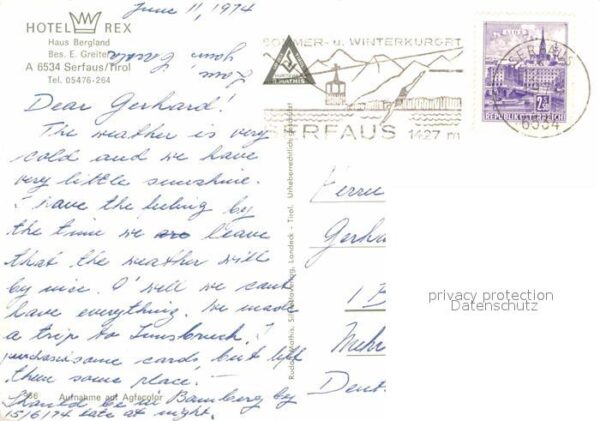 June 11, 1974
HOTEL REX
Haus Bergland
Bes. E. Greiter
A 6534 Serfaus/Tirol
Tel. 05476-264
Dear Gerhard!
The weather is very
cold and we have
very little sunshine.
I have the feeling by
the time we are leave
that the weather will
by nice. O'well we cant
have everything. We made
a trip to Innsbruck. I
purchasi some cards, but left
them some place.
Should be in Bamberg by
15/6/74 late at night.
Love, your
Aufnahme auf Agfacolor
Rudolf Mathis, Landeck - Tirol. Urheberrechtlich geschützt
SOMMER- u. WINTERKURORT
SERFAUS 1427 m
SERFAUS
6534
WIEN
2.50
REPUBLIK ÖSTERREICH
Herrn
Gerha
1 B
privacy protection
Datenschutz